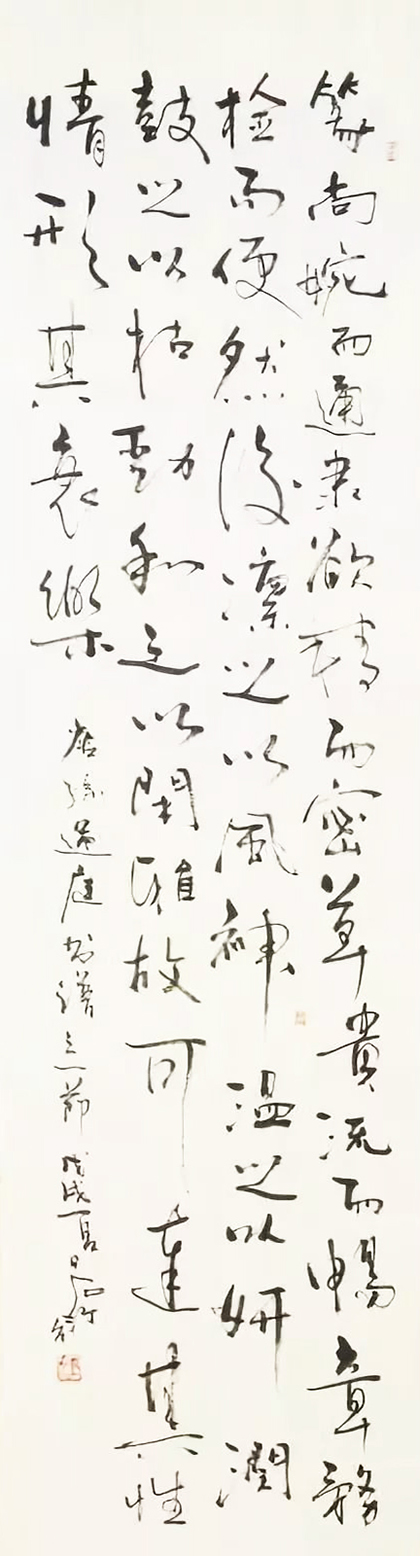 篆尚婉而通隶欲精而密草贵流而畅章务
检而便然后凛之以风神温之以妍润
鼓之以枯劲和之以闲雅故可达其性
情形其哀乐
唐孙过庭书谱之一节戊戌夏日